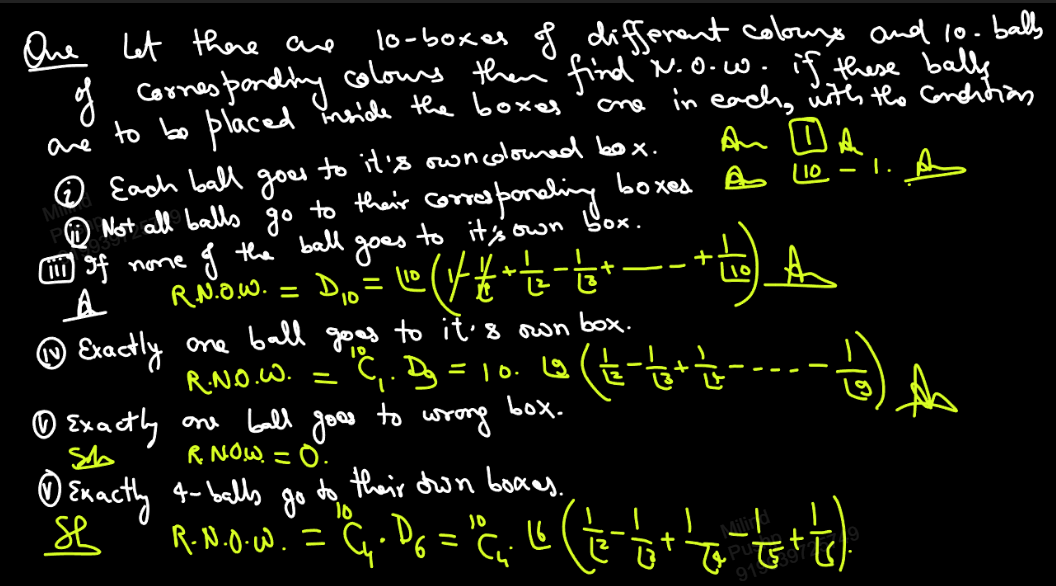 Que Let there are 10-boxes of different colours and 10-balls
of corresponding colours then find N.O.W. if these balls
are to be placed inside the boxes one in each, with the conditions
(i) Each ball goes to it's own coloured box. An 1 A
(ii) Not all balls go to their corresponding boxes A ⌊10 - 1. A
(iii) If none of the ball goes to it's own box.
A R.N.O.W. = D₁₀ = ⌊10 (1 - 1/⌊1 + 1/⌊2 - 1/⌊3 + ---- + 1/⌊10) A
(iv) Exactly one ball goes to it's own box.
R.N.O.W. = ¹⁰C₁. D₉ = 10. ⌊9 (1/⌊2 - 1/⌊3 + 1/⌊4 - ---- - 1/⌊9) A
(v) Exactly one ball goes to wrong box.
Sol R.NOW. = 0.
(v) Exactly 4-balls go to their own boxes.
Sol R.N.O.W. = ¹⁰C₄. D₆ = ¹⁰C₄. ⌊6 (1/⌊2 - 1/⌊3 + 1/⌊4 - 1/⌊5 + 1/⌊6).